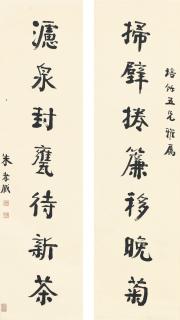 培竹五兄雅属
掃壁捲簾移晚菊
濾泉封甕待新茶
朱孝臧